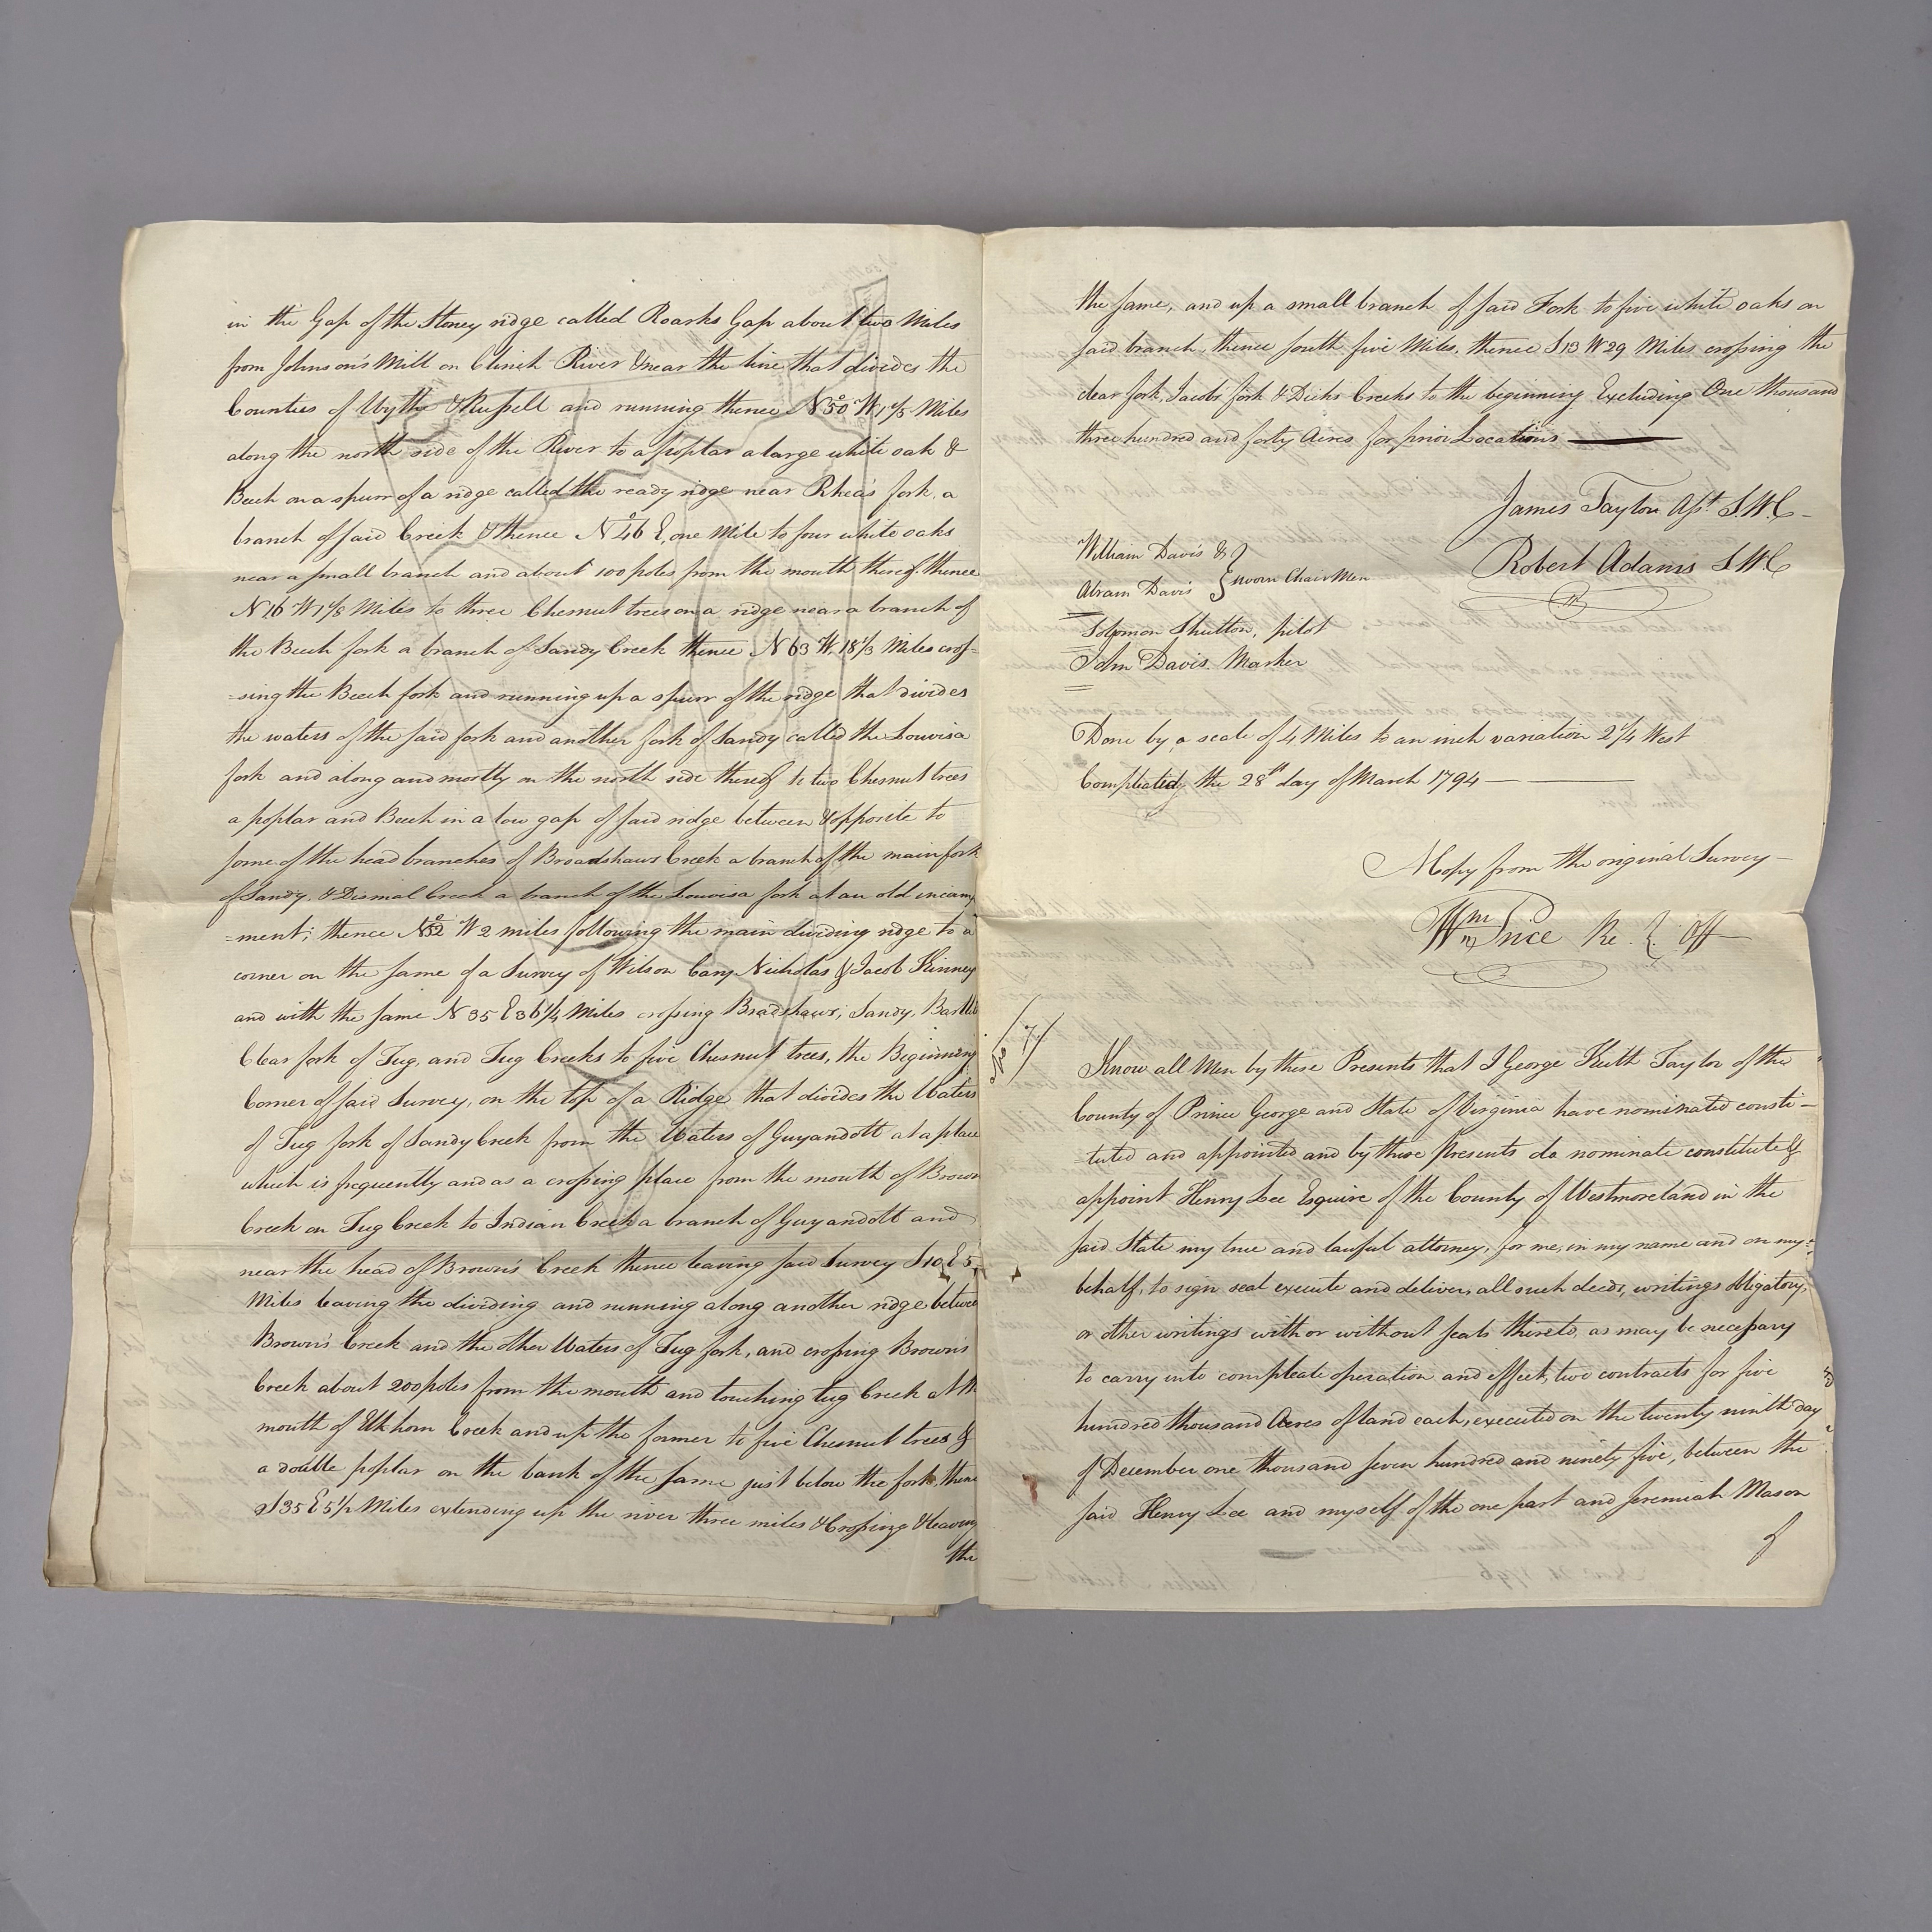 in the Gap of the Stoney ridge called Roarks Gap about two Miles
from Johnson's Mill on Clinch River & near the line that divides the
Counties of Wythe & Russell and running thence N 50° W 1 1/5 Miles
along the north side of the River to a poplar a large white oak &
Beech on a spurr of a ridge called the ready ridge near Rhea's fork, a
branch of said Creek & thence N 46° E, one Mile to four white oaks
near a small branch and about 100 poles from the mouth thereof. thence
N 16 W 1 1/8 Miles to three Chesnut trees on a ridge near a branch of
the Beech fork a branch of Sandy Creek thence N 63 W. 18 1/3 Miles cros=
=sing the Beech fork and running up a spurr of the ridge that divides
the waters of the said fork and another fork of Sandy called the Louvisa
fork and along and mostly on the north side thereof to two Chesnut trees
a poplar and Beech in a low gap of said ridge between & opposite to
some of the head branches of Broadshaws Creek a branch of the main fork
of Sandy, & Dismal Creek a branch of the Louvisa fork at an old incamp
=ment; thence N 52° W 2 miles following the main dividing ridge to a
corner on the same of a Survey of Wilson Cary Nicholas & Jacob Kinney
and with the same N 35 E 36 1/4 Miles crossing Bradshaws, Sandy,
Clear fork of Tug, and Tug Creeks to five Chesnut trees, the Beginning
Corner of said Survey, on the top of a Ridge that divides the Waters
of Tug fork of Sandy Creek from the Waters of Guyandott at a place
which is frequently and as a crossing place from the mouth of Brown
Creek on Tug Creek to Indian Creek a branch of Guyandott and
near the head of Brown's Creek thence leaving said Survey S 10 E 5
Miles leaving the dividing and running along another ridge between
Brown's Creek and the other Waters of Tug fork, and crossing Brown's
Creek about 200 poles from the mouth and touching tug Creek at the
mouth of Elkhorn Creek and up the former to five Chesnut trees &
a double poplar on the bank of the same just below the fork, thence
S 35 E 5 1/2 Miles extending up the river three miles & Crossing & leaving
the
the same, and up a small branch of said Fork to five white oaks on
said branch, thence south five Miles, thence S 13 W 29 Miles crossing the
clear fork, Jacobs fork & Dicks Creeks to the beginning Excluding One thousand
three hundred and forty Acres for prior Locations
James Taylor Asst. S.W.C
Robert Adams S.W.C
William Davis & } sworn Chair Men
Abram Davis
Solomon Shutton, pilot
John Davis Marker
Done by a scale of 4 Miles to an inch variation 2 1/4 West
Compleated the 28th day of March 1794
A Copy from the original Survey
Wm Price Re. L. Off
No 7
Know all Men by these Presents that I George Keith Taylor of the
County of Prince George and State of Virginia have nominated consti-
=tuted and appointed and by these presents do nominate constitute &
appoint Henry Lee Esquire of the County of Westmoreland in the
said State my true and lawful attorney, for me, in my name and on my
behalf, to sign seal execute and deliver, all such deeds, writings obligatory,
or other writings with or without seals thereto, as may be necessary
to carry into compleate operation and effect, two contracts for five
hundred thousand Acres of land each, executed on the twenty ninth day
of December one thousand seven hundred and ninety five, between the
said Henry Lee and myself of the one part and Jeremiah Mason
of